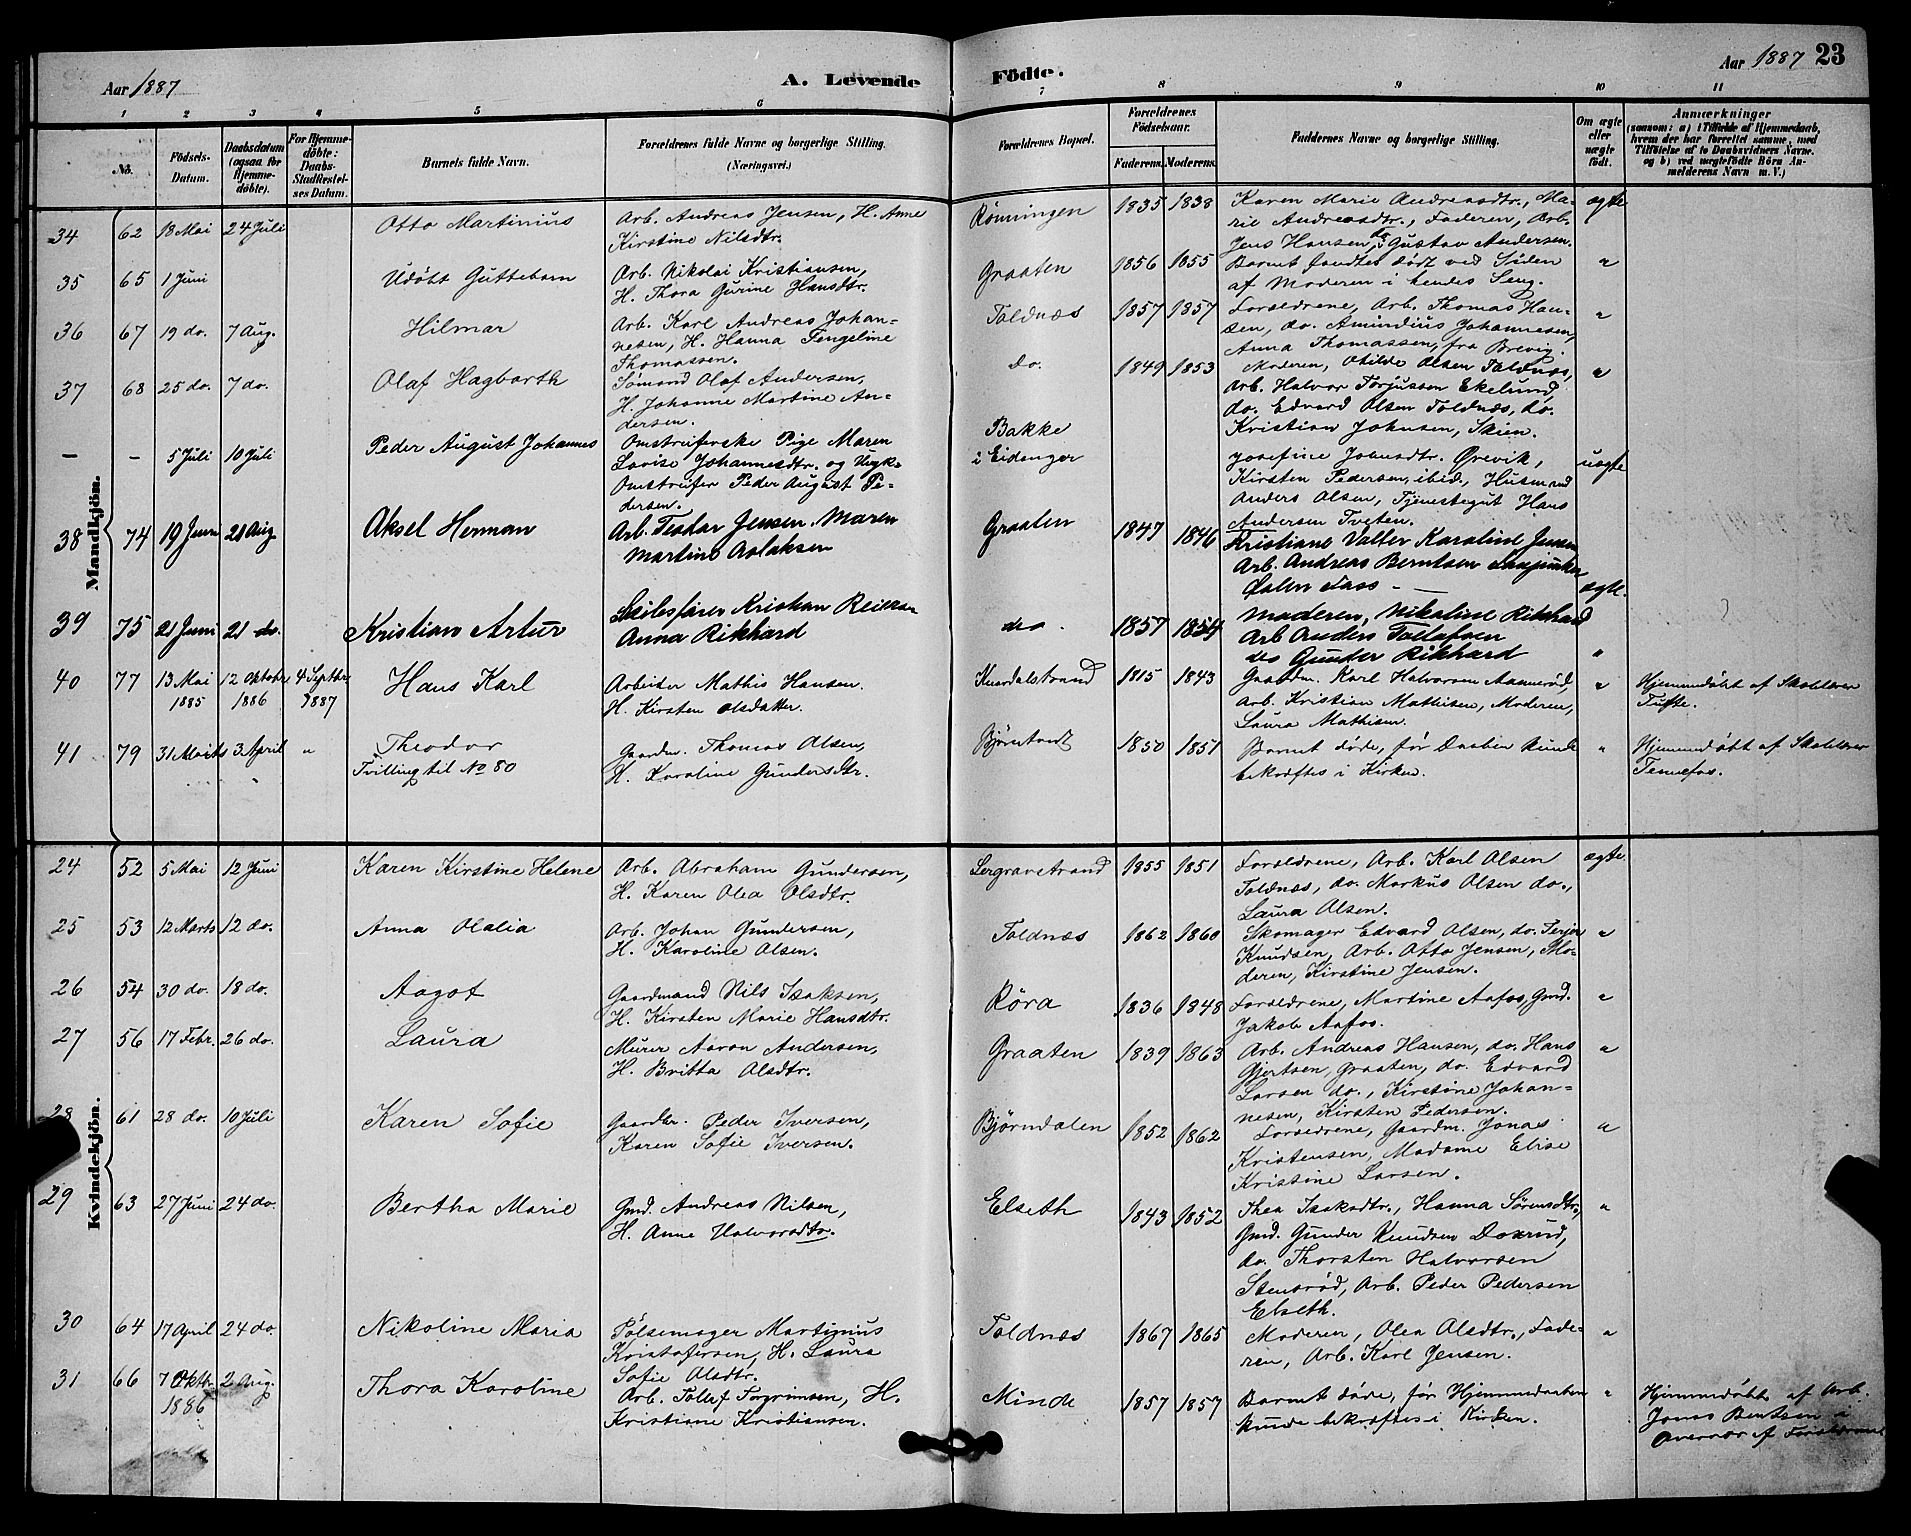 Aar 1887
A. Levende Födte.
Aar 1887 23
1 2 3 4 5 6 7 8 9 10 11
No.
Födsels-Datum.
Daabsdatum (ogsaa for Hjemmedöbte).
For Hjemmedöbte: Daabs-Stadfæstelses Datum.
Barnets fulde Navn.
Forældrenes fulde Navne og borgerlige Stilling. (Næringsvei.)
Forældrenes Bopæl.
Forældrenes Födselsaar.
Faderens. Moderens.
Faddernes Navne og borgerlige Stilling.
Om ægte eller uægte født.
Anmærkninger
(saasom: a) i Tilfælde af Hjemmedaab, hvem der har forrettet samme, med Tilföielse af to Daabsvidners Navne, og b) ved uægtefödte Börn Anmelderens Navn m. V.)
Mandkjön.
34 62 18 Mai 24 Juli Otto Martinius
Arb. Andreas Jensen, H. Anne
Kirstine Nilsdtr.
Rönningen 1835 1838
Karen Marie Andreasdtr., Ma-
rie Andreasdtr., Faderen, Arb.
Jens Hansen, do Gustav Andersen.
ægte
35 65 1 Juni Udöbt Guttebarn
Arb. Nikolai Kristiansen,
H. Thora Gurine Hansdtr.
Graaten 1856 1855
Barnet fandtes dödt ved Siden
af Moderen i hendes Seng.
"
36 67 19 do. 7 Aug. Hilmar
Arb. Karl Andreas Johan-
nesen, H. Hanna Tengeline
Thomassen.
Toldnæs 1857 1857
Forældrene, Arb. Thomas Han-
sen, do. Amundius Johannesen,
Anna Thomassen, fra Brevig.
"
37 68 25 do. 7 do. Olaf Hagbarth
Sömand Olaf Andersen,
H. Johanne Martine An-
dersen.
do. 1849 1853
Moderen, Otilde Olsen Toldnæs,
Arb. Halvor Torjussen Ekelund,
do. Edvard Olsen Toldnæs, do.
Kristian Johnsen, Skien.
"
— — 5 Juli 10 Juli Peder August Johannes
Omstreiferske Pige Maren
Lovise Johannesdtr. og Ungk.
Omstreifer Peder August Pe-
dersen.
Bakke
i Eidanger
Josefine Johnsdtr. Ørevik,
Kirsten Pedersen, ibid., Husmand
Anders Olsen, Tjenestegut Hans
Andersen Tveten.
uægte
38 74 19 Juni 21 Aug Aksel Herman
Arb. Teodor Jensen. Maren
Martine Aslaksen
Graaten 1847 1846
Kristiane Valter Karoline Jensen
Arb. Andreas Berntsen
ægte.
39 75 21 Juni 21 do. Kristian Artur
Skibsfører Kristian Reiersen
Anna Rikhard
do. 1857 1854
Moderen, Nikoline Rikhard
Arb Anders Tollefsen
do Gunder Rikhard
"
40 77 13 Mai 1885 12 Oktobr 1886 4 Septbr 1887 Hans Karl
Arbeider Mathis Hansen.
H. Kirsten Olsdatter.
Knardalstrand 1815 1843
Gaardm. Karl Halvorsen Aamerød,
Arb. Kristian Mathisen, Moderen,
Laura Mathisen.
"
Hjemmedøbt af Skolelærer
Tufte.
41 79 31 Marts 3 April " Theodor
Tvilling til No 80
Gaardm. Thomas Olsen,
H. Karoline Gundersdtr.
Bjørntvedt 1850 1851
Barnet døde, før Daaben kunde
bekræftes i Kirken.
"
Hjemmedøbt af Skolelærer
Tennefos.
Kvindekjön.
24 52 5 Mai 12 Juni Karen Kirstine Helene
Arb. Abraham Gundersen,
H. Karen Olea Olsdtr.
Lergravstrand 1855 1851
Forældrene, Arb. Karl Olsen
Toldnæs, do. Markus Olsen do.,
Laura Olsen.
ægte
25 53 12 Marts 12 do. Anna Olalia
Arb. Johan Gundersen,
H. Karoline Olsen.
Toldnæs 1862 1860
Skomager Edvard Olsen, do. Terjer
Knudsen, Arb. Otto Jensen, Mo-
deren, Kirstine Jensen.
"
26 54 30 do. 18 do. Aagot
Gaardmand Nils Isaksen,
H. Kirsten Marie Hansdtr.
Röra 1836 1848
Forældrene, Martine Aafos, Gmd.
Jakob Aafos.
"
27 56 17 Febr. 26 do. Laura
Murer Aaron Andersen,
H. Britta Olsdtr.
Graaten 1839 1863
Arb. Andreas Hansen, do. Hans
Gjertsen, Graaten, do. Edvard
Larsen do., Kirstine Johan-
nesen, Kirsten Pedersen.
"
28 61 28 do. 10 Juli Karen Sofie
Gaardbr. Peder Iversen,
Karen Sofie Iversen.
Bjørndalen 1852 1862
Forældrene, Gaardm. Jonas
Kristensen, Madame Elise
Kristine Larsen.
"
29 63 27 Juni 24 do. Bertha Marie
Gmd. Andreas Nilsen,
H. Anne Halvorsdtr.
Elseth 1843 1852
Thea Isaksdtr., Hanna Sørensdtr.,
Gmd. Gunder Knudsen Doxrud,
do. Thorsten Halvorsen
Stensrød, Arb. Peder Pedersen
Elseth.
"
30 64 17 April 24 do. Nikoline Maria
Pølsemager Martinius
Kristofersen, H. Laura
Sofie Olsdtr.
Toldnæs 1867 1865
Moderen, Olea Olsdtr., Fade-
ren, Arb. Karl Jensen.
"
31 66 7 Oktbr. 1886 2 Aug. Thora Karoline
Arb. Tollef Torgrimsen, H.
Kristiane Kristiansen.
Minde 1857 1857
Barnet døde, før Hjemmedaaben
kunde bekræftes i Kirken.
"
Hjemmedöbt af Arb.
Jonas Bentsen i
Overvær af Forældrene